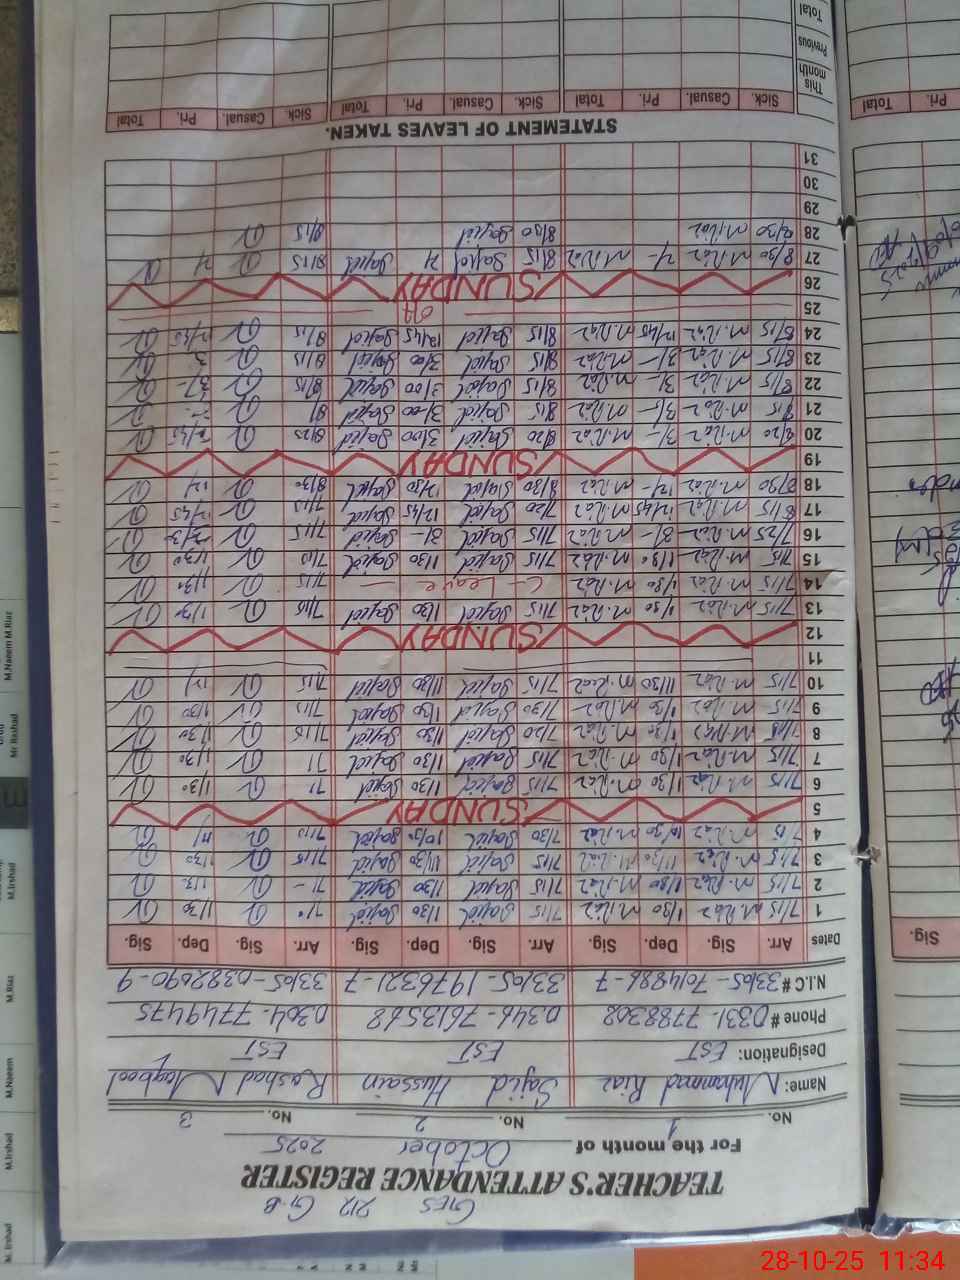 GES 212 G.B
TEACHER'S ATTENDANCE REGISTER
For the month of October 2025
No. 1 No. 2 No. 3
Name: Muhammad Riaz Sajid Hussain Rashad Maqbool
Designation: EST EST EST
Phone # 0331-7788308 0346-7613568 0304-7749475
N.I.C # 33105-7014886-7 33105-1976321-7 33105-0382690-9
Dates Arr. Sig. Dep. Sig. Arr. Sig. Dep. Sig. Arr. Sig. Dep. Sig.
1 7/15 M.Riaz 1/30 M.Riaz 7/15 Sajid 1/30 Sajid 1/30
2 7/15 M.Riaz 1/30 M.Riaz 7/15 Sajid 1/30 Sajid
3 7/15 M.Riaz 11/30 M.Riaz 7/15 Sajid 11/30 Sajid 7/15 1/30
4 7/15 M.Riaz 10/30 M.Riaz 7/30 Sajid 10/30 Sajid 7/15
5 SUNDAY
6 7/15 M.Riaz 1/30 M.Riaz 7/15 Sajid 1/30 Sajid 1/30
7 7/15 M.Riaz 1/30 M.Riaz 7/15 Sajid 1/30 Sajid 1/30
8 7/15 M.Riaz 1/30 M.Riaz 7/20 Sajid 1/30 Sajid 7/15 1/30
9 7/15 M.Riaz 1/30 M.Riaz 7/30 Sajid 1/30 Sajid 7/15 1/30
10 7/15 M.Riaz 11/30 M.Riaz 7/15 Sajid 11/30 Sajid 7/15
11
12 SUNDAY
13 7/15 M.Riaz 1/30 M.Riaz 7/15 Sajid 1/30 Sajid 7/15 1/30
14 7/15 M.Riaz 1/30 M.Riaz C-Leave 7/15 1/30
15 7/15 M.Riaz 1/30 M.Riaz 7/15 Sajid 1/30 Sajid 7/15 1/30
16 7/25 M.Riaz 3/- M.Riaz 7/15 Sajid 3/- Sajid 7/15
17 8/15 M.Riaz 12/45 M.Riaz 7/20 Sajid 12/45 Sajid 12/45
18 8/30 M.Riaz M.Riaz 8/30 Sajid 12/30 Sajid 8/30
19 SUNDAY
20 8/20 M.Riaz 3/- M.Riaz 8/20 Sajid 3/00 Sajid 8/25
21 8/15 M.Riaz 3/- M.Riaz 8/15 Sajid 3/00 Sajid
22 8/15 M.Riaz 3/- M.Riaz 8/15 Sajid 3/00 Sajid 8/15 3/-
23 8/15 M.Riaz 3/- M.Riaz 8/15 Sajid 3/00 Sajid 8/15
24 8/15 M.Riaz 12/45 M.Riaz 8/15 Sajid 12/45 Sajid 8/15 12/45
25
26 SUNDAY
27 8/30 M.Riaz M.Riaz 8/15 Sajid Sajid 8/15
28 8/30 M.Riaz 8/30 Sajid 8/15
29
30
31
STATEMENT OF LEAVES TAKEN.
Sick. Casual. Pri. Total Sick. Casual. Pri. Total Sick. Casual. Pri. Total
This month
Previous
Total
Sig.
Pri. Total
M.Naeem M.Riaz
Mr Rashad
M.Irshad
M.Riaz
M.Naeem
M.Irshad
M. Irshad
28-10-25 11:34